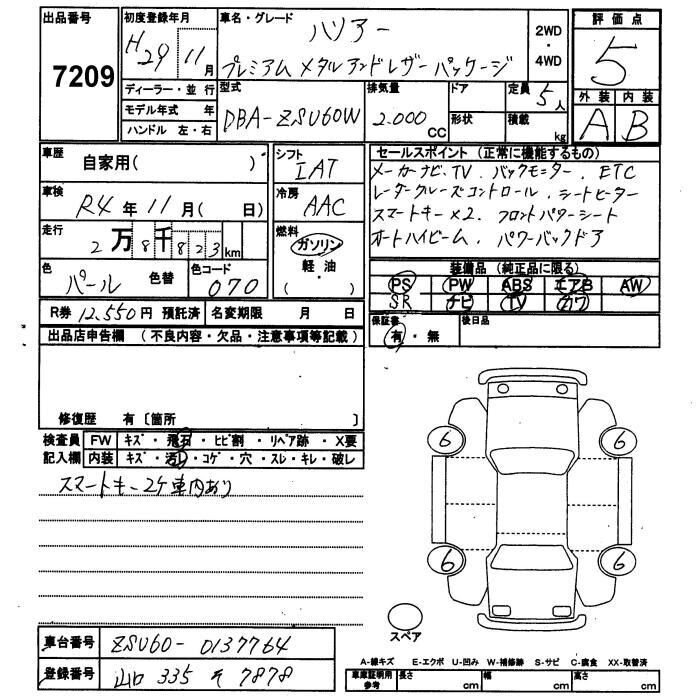 出品番号 7209
初度登録年月 H29 11月
車名・グレード ハリアー
プレミアム メタル アンド レザー パッケージ
2WD
・
4WD
評価点 5
外装 内装
A B
ディーラー・並行
モデル年式 年
ハンドル 左・右
型式 DBA-ZSU60W
排気量 2.000 CC
ドア
形状
定員 5人
積載 kg
車歴 自家用( )
シフト IAT
車検 R4年11月( 日)
冷房 AAC
走行 2万8千823km
燃料 ガソリン
軽・油
( )
色 パール 色替
色コード 070
R券 12,550円 預託済
名変期限 月 日
セールスポイント (正常に機能するもの)
メーカーナビ、TV、バックモニター、ETC
レーダークルーズコントロール、シートヒーター
スマートキー×2、フロントパワーシート
オートハイビーム、パワーバックドア
装備品 (純正品に限る)
PS PW ABS エアB AW
SR ナビ TV カワ
保証書 有・無
後日品
出品店申告欄 (不良内容・欠品・注意事項等記載)
修復歴 有〔箇所 〕
検査員 FW キズ・飛石・ヒビ割・リペア跡・X要
記入欄 内装 キズ・汚レ・コゲ・穴・スレ・キレ・破レ
スマートキー2ケ車内あり
6 6
6 6
スペア
車台番号 ZSU60-0137764
登録番号 山口 335 そ 7878
A-線キズ E-エクボ U-凹み W-補修跡 S-サビ C-腐食 XX-取替済
車庫証明用参考 長さ cm 幅 cm 高さ cm